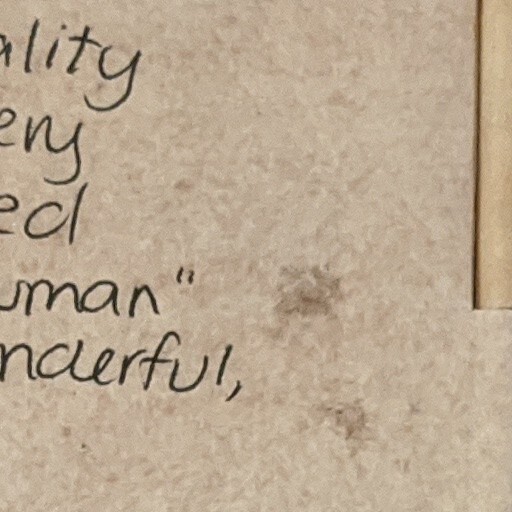 ality
ery
ed
uman"
nderful,